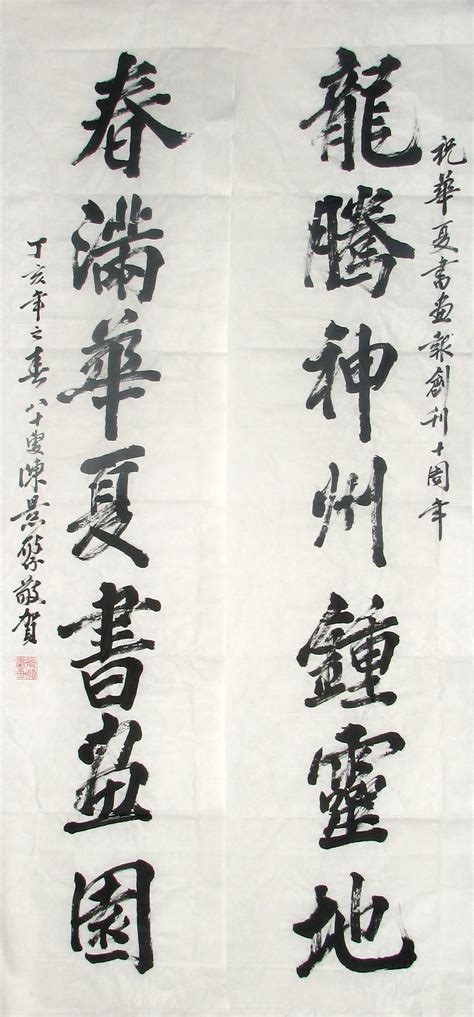 祝華夏書画報創刊十周年
龍騰神州鍾靈地
春滿華夏書畫園
丁亥年之春八十叟陳景繁敬賀